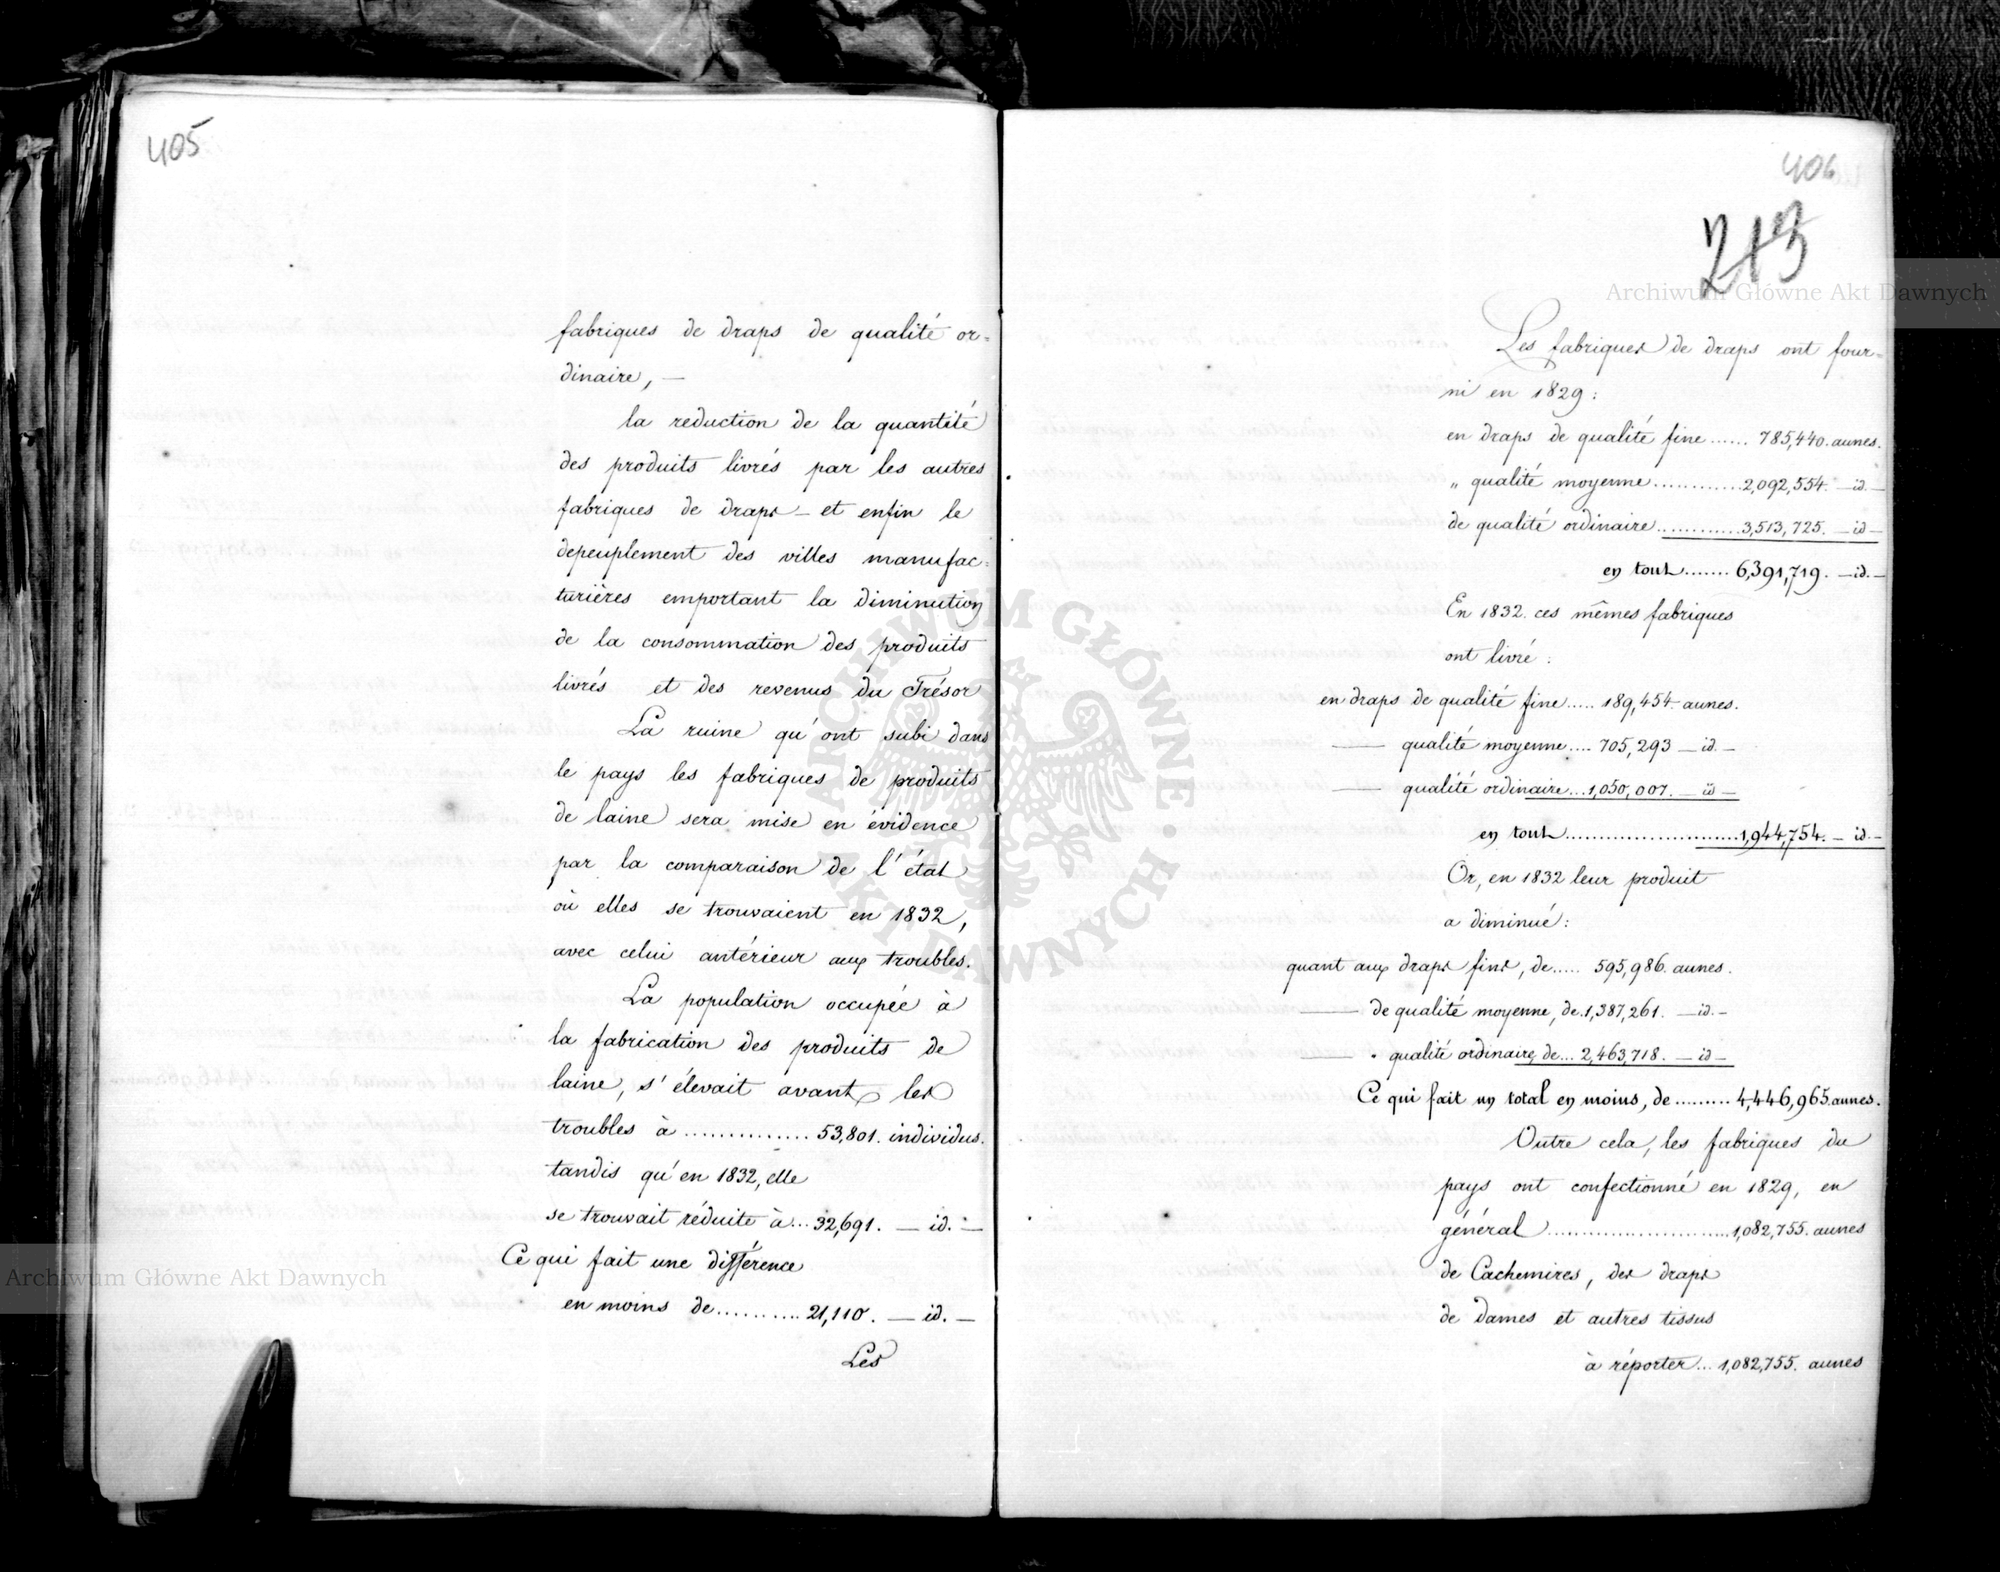 405
fabriques de draps de qualité or=
dinaire, —
la reduction de la quantité
des produits livrés par les autres
fabriques de draps — et enfin le
depeuplement des villes manufac=
turières emportant la diminution
de la consommation des produits
livrés et des revenus du Trésor
La ruine qu'ont subi dans
le pays les fabriques de produits
de laine sera mise en évidence
par la comparaison de l'état
où elles se trouvaient en 1832,
avec celui antérieur aux troubles.
La population occupée à
la fabrication des produits de
laine, s'élevait avant les
troubles à .............. 53,801. individus.
tandis qu'en 1832, elle
se trouvait réduite à ... 32,691. — id. —
Ce qui fait une différence
en moins de .......... 21,110. — id. —
Les
406
213
Les fabriques de draps ont four=
ni en 1829:
en draps de qualité fine ...... 785,440. aunes.
„ qualité moyenne ............ 2,092,554. — id. —
de qualité ordinaire ............ 3,513,725. — id —
en tout ....... 6,391,719. — id. —
En 1832. ces mêmes fabriques
ont livré:
en draps de qualité fine ..... 189,454. aunes.
— qualité moyenne .... 705,293 — id. —
— qualité ordinaire ... 1,050,007. — id —
en tout ........................ 1,944,754. — id. —
Or, en 1832 leur produit
a diminué:
quant aux draps fins, de ..... 595,986. aunes.
— de qualité moyenne, de . 1,387,261. — id. —
— " qualité ordinaire, de ... 2,463,718. — id —
Ce qui fait un total en moins, de ......... 4,446,965. aunes.
Outre cela, les fabriques du
pays ont confectionné en 1829, en
général ......................... 1,082,755. aunes
de Cachemires, des draps
de dames et autres tissus
à réporter ... 1,082,755. aunes
Archiwum Główne Akt Dawnych
Archiwum Główne Akt Dawnych
ARCHIWUM GŁÓWNE • AKT DAWNYCH •